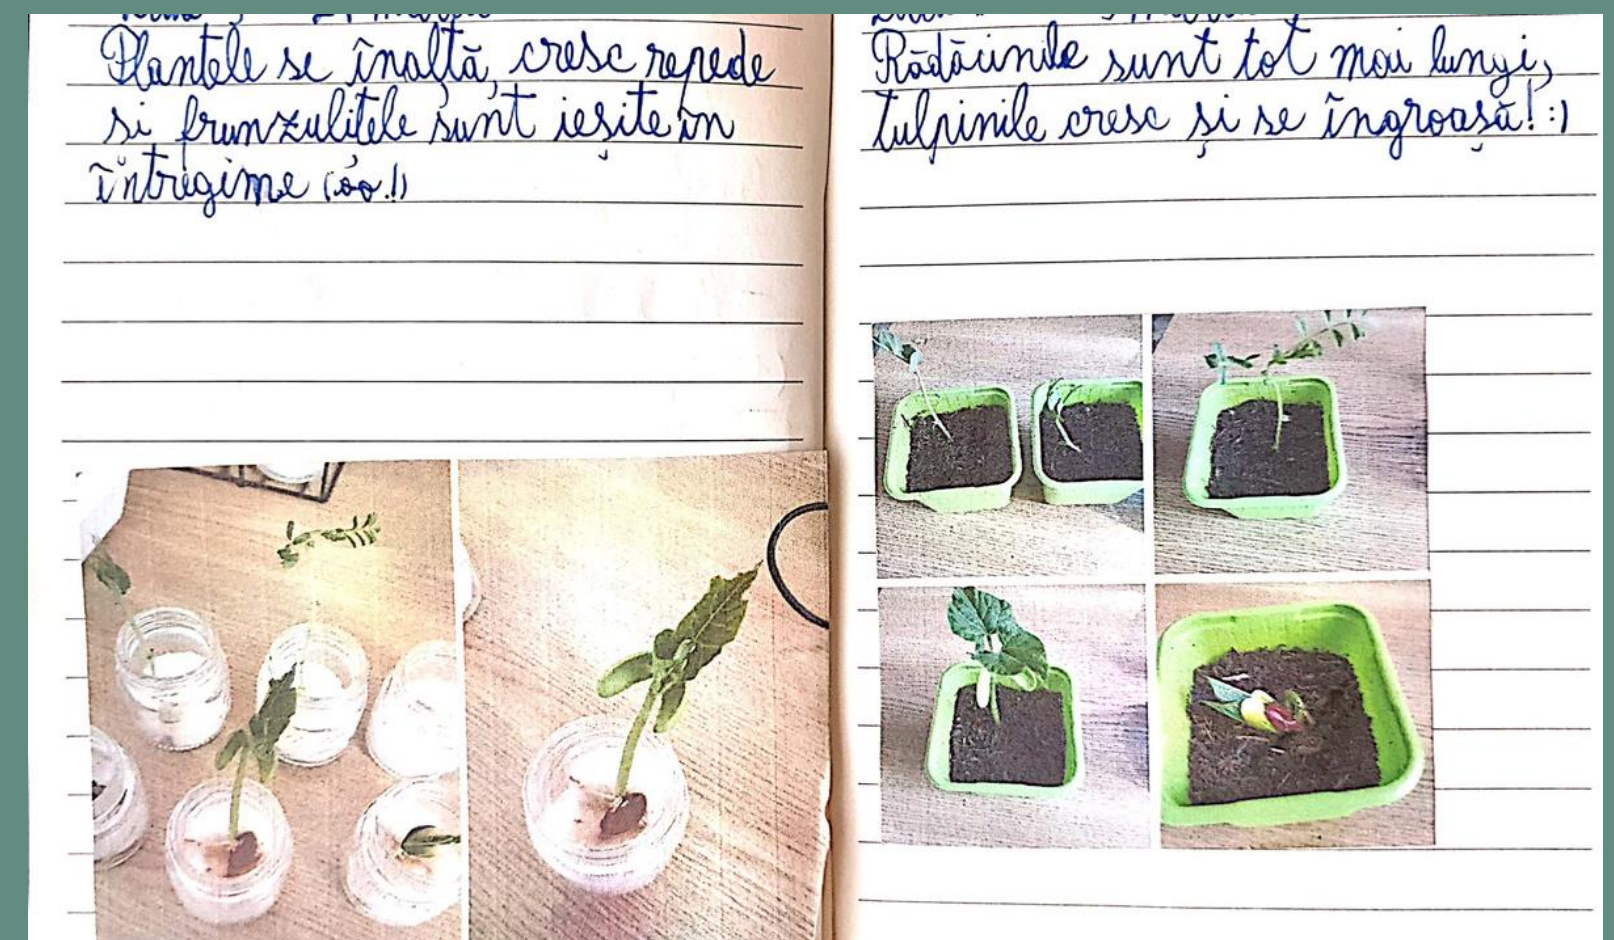 Plantele se înalță, cresc repede
si frunzulițele sunt ieșite în
întregime
Rădăcinile sunt tot mai lungi,
tulpinile cresc și se îngroașă! :)